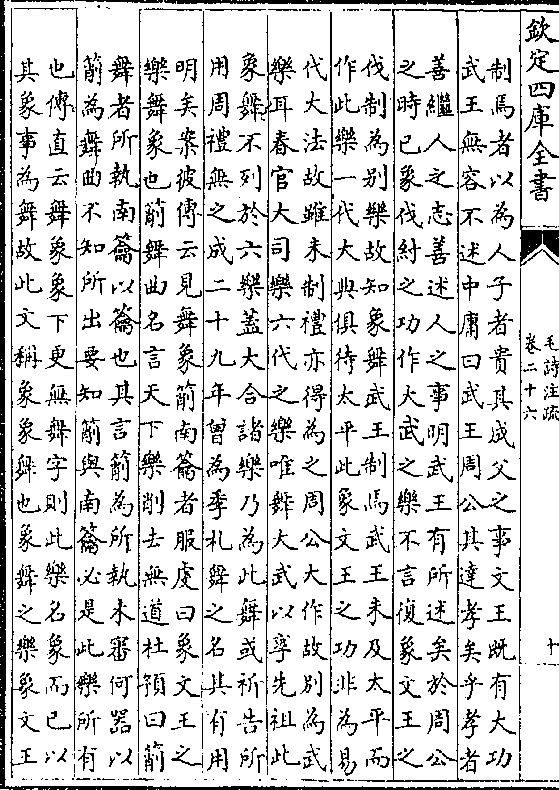 欽定四庫全書
毛詩注疏
卷二十六
十
制焉者以為人子者貴其成父之事文王既有大功
武王無容不述中庸曰武王周公其達孝矣乎孝者
善繼人之志善述人之事明武王有所述矣於周公
之時已象伐紂之功作大武之樂不言復象文王之
伐制為別樂故知象舞武王制焉武王未及太平而
作此樂一代大典俱待太平此象文王之功非為易
代大法故雖未制禮亦得為之周公大作故別為武
樂耳春官大司樂六代之樂唯舞大武以享先祖此
象舞不列於六樂蓋大合諸樂乃為此舞或祈告所
用周禮無之成二十九年曾為季札舞之名其有用
明矣案彼傳云見舞象箾南籥者服虔曰象文王之
樂舞象也箾舞曲名言天下樂削去無道杜預曰箾
舞者所執南籥以籥也其言箾為所執未審何器以
箾為舞曲不知所出要知箾與南籥必是此樂所有
也傳直云舞象象下更無舞字則此樂名象而已以
其象事為舞故此文稱象象舞也象舞之樂象文王